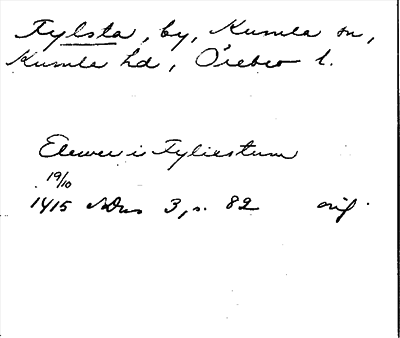 Fylsta, by, Kumla sn,
Kumla hd, Örebro l.
Elewer i Fyliestum
19/10
1415 SDns 3, s. 82 orig.